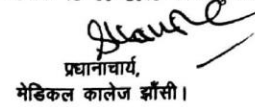 प्रधानाचार्य,
मेडिकल कालेज झाँसी।